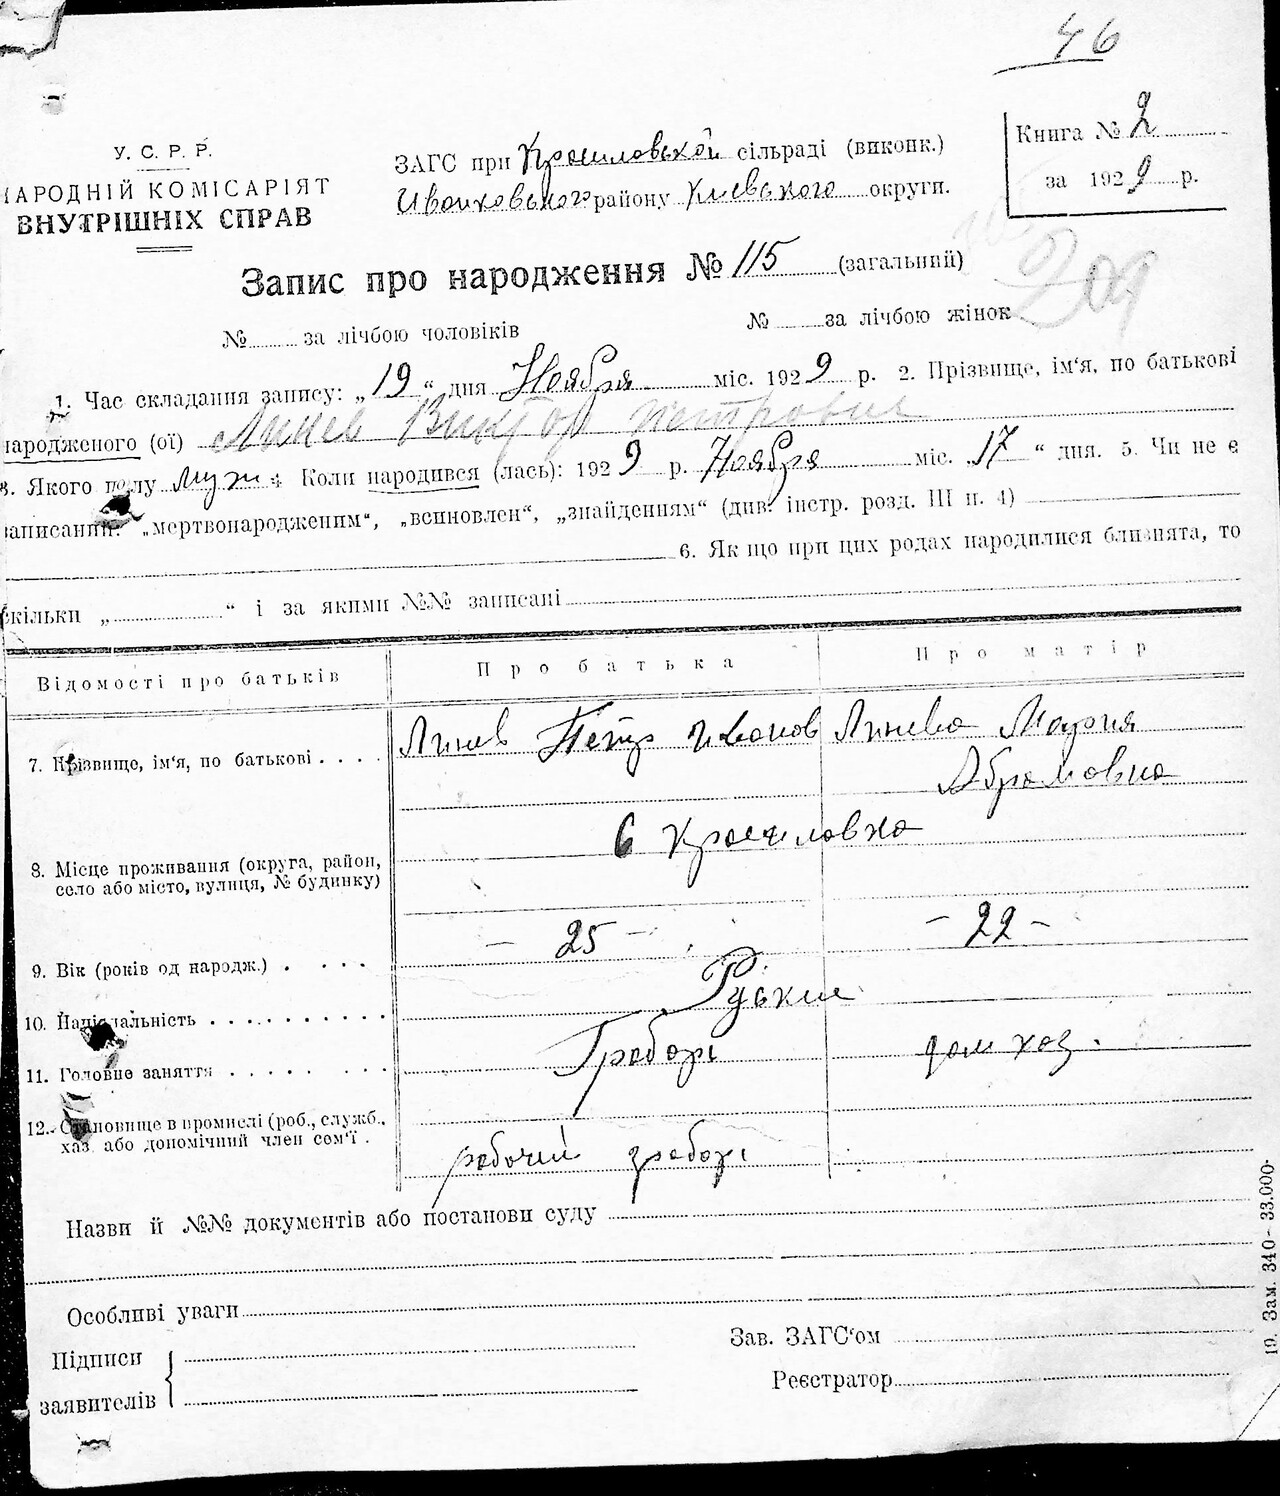 46
У. С. Р. Р.
НАРОДНІЙ КОМІСАРІЯТ
ВНУТРІШНІХ СПРАВ
ЗАГС при сільраді (виконк.)
району Киевського округи.
Книга № 2
за 1929 р.
Запис про народження № 115 (загальний)
209
№ за лічбою чоловіків № за лічбою жінок
1. Час складання запису: „19“ дня Ноября міс. 1929 р. 2. Прізвище, ім‘я, по батькові
народженого (ої) Линев Виктор Петрович
3. Якого полу муж 4. Коли народився (лась): 1929 р. Ноября міс. „17“ дня. 5. Чи не є
записаний: „мертвонародженим“, „всиновлен“, „знайденням“ (див. інстр. розд. III п. 4)
6. Як що при цих родах народилися близнята, то
скільки „ “ і за якими №№ записані
Відомості про батьків Про батька Про матір
7. Прізвище, ім‘я, по батькові . . . . Линев Петр Иванов Линева Мария
Абрамовна
8. Місце проживання (округа, район,
село або місто, вулиця, № будинку)
9. Вік (років од народж.) . . . . – 25 – – 22 –
10. Національність . . . . . . . . . . Руские
11. Головне заняття . . . . . . . . Грабарь дом хоз.
12. Становище в промислі (роб., служб.,
хаз. або допомічний член сем‘ї . рабочий грабарь
Назви й №№ документів або постанови суду
Особливі уваги
Підписи
заявителів
Зав. ЗАГС‘ом
Реєстратор
19. Зам. 340—33.000.